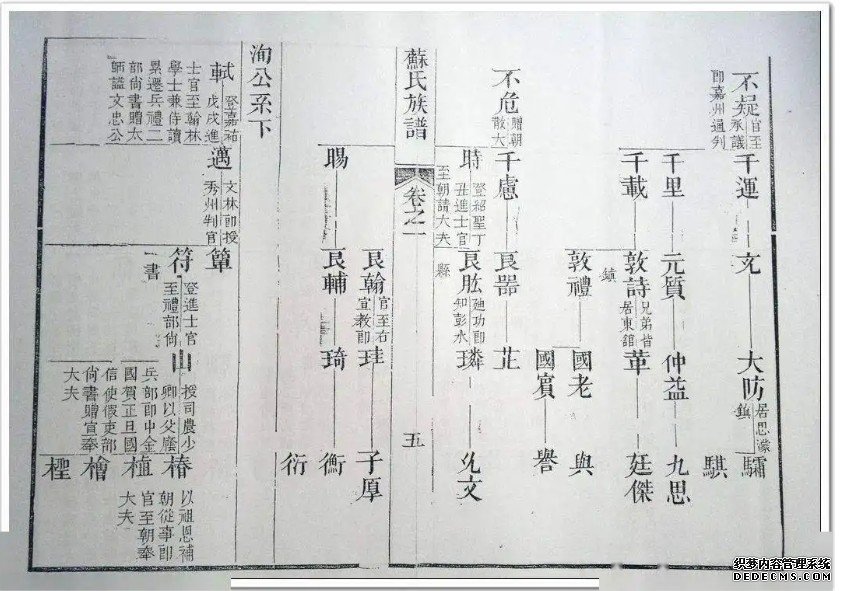 不疑
官至
承議
郎嘉州通判
千運
文
大防
居思濛
鎮
驌
騏
千里
元質
仲益
九思
千載
敦詩
兄弟皆
居東舘
鎮
廷傑
敦禮
國老
與
國賓
譽
不危
贈朝
散大
千慮
良器
芷
時
登紹聖丁
丑進士官
至朝請大夫
良肱
迪功郎
知彭水
縣
璘
允文
蘇氏族譜
卷之一
五
良翰
官至右
宣教郎
珪
子厚
暘
良輔
琦
衡
衍
洵公系下
軾
登嘉祐
戊戌進
士官至翰林
學士兼侍讀
累遷兵禮二
部尚書贈太
師謚文忠公
邁
文林郎授
秀州判官
簞
符
登進士官
至禮部尚
書
山
授司農少
卿以父廕
兵部郎中金
國賀正旦國
信使假吏部
尚書贈宣奉
大夫
椿
以祖恩補
朝從事郎
官至朝奉
大夫
植
檜
織梦内容管理系统
DEDECMS.COM